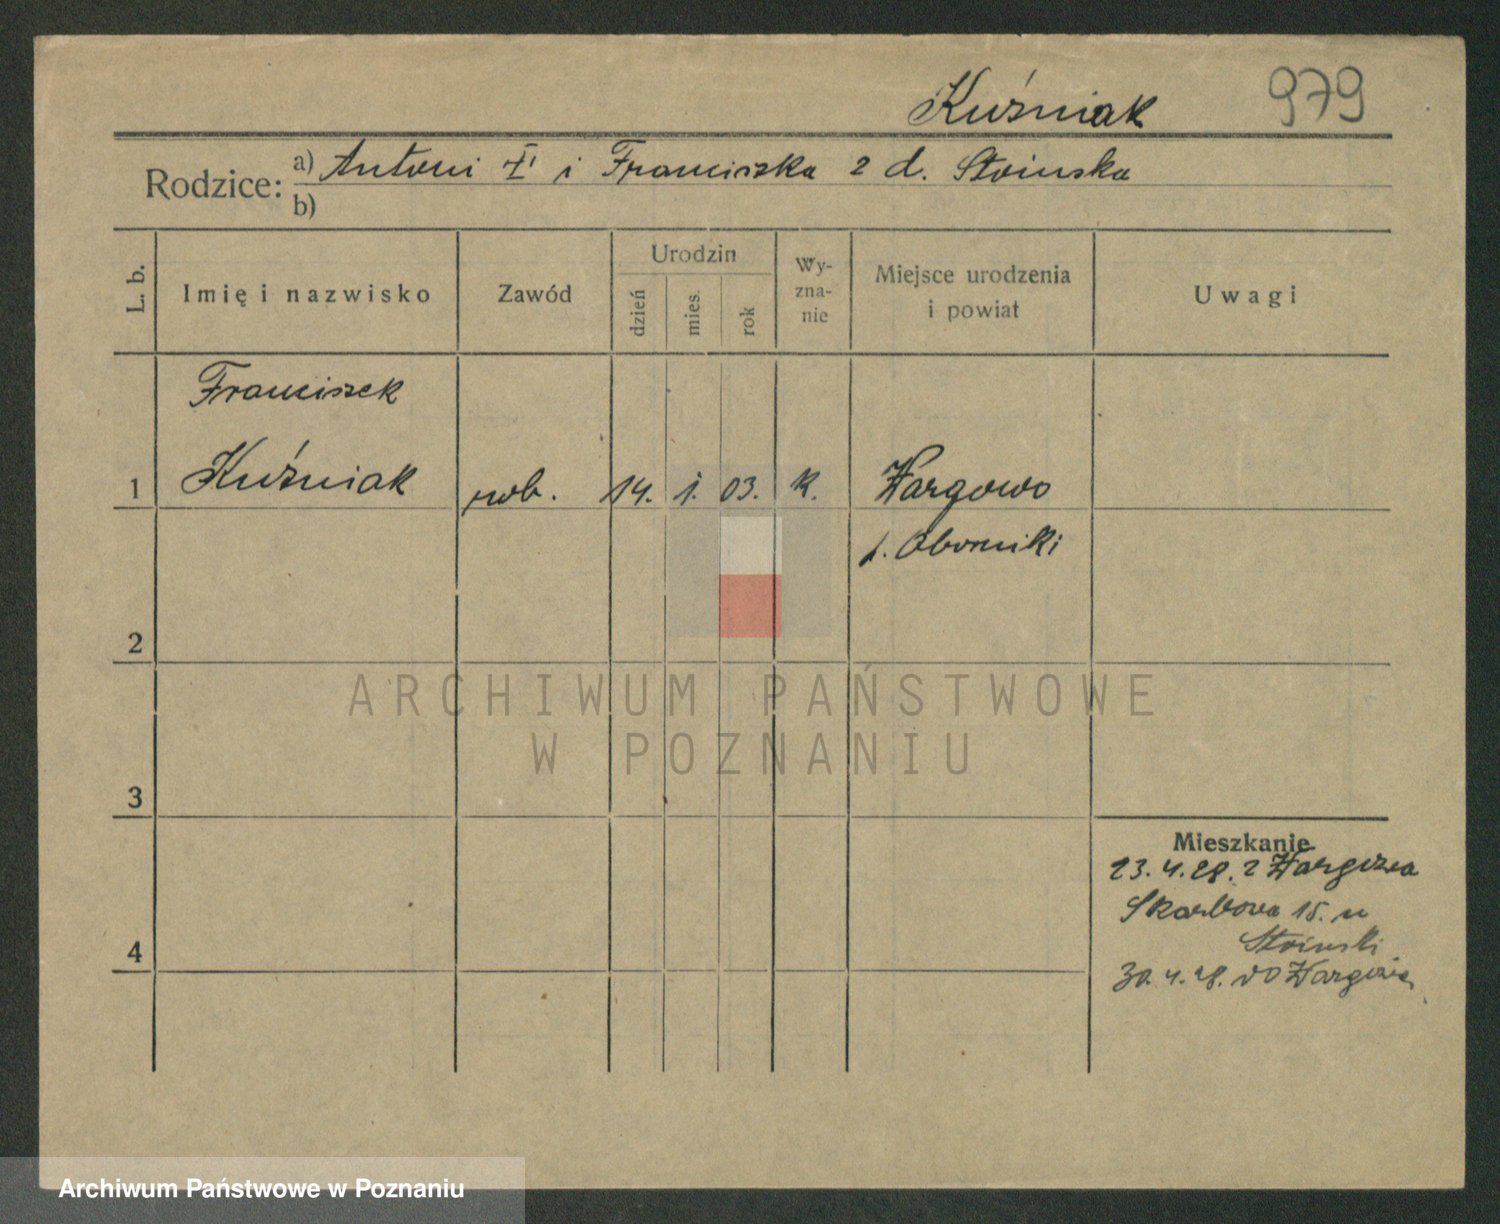 Kuźniak 979
Rodzice: a) Antoni i Franciszka z d. Stoinska
b)
L. b. Imię i nazwisko Zawód Urodzin dzień mies. rok Wyznanie Miejsce urodzenia i powiat Uwagi
Franciszek
1 Kuźniak rob. 14. 1. 03. k. Wargowo
p. Oborniki
2
ARCHIWUM PAŃSTWOWE
W POZNANIU
3
Mieszkanie
23.4.28. z Wargowa
Skarbowa 15. u
Stoinski
4
30.4.28. do Wargowa
Archiwum Państwowe w Poznaniu